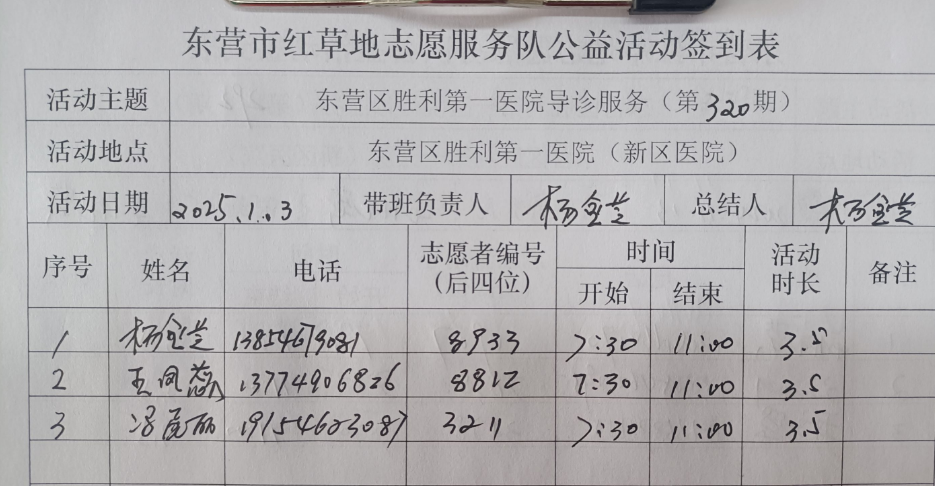 东营市红草地志愿服务队公益活动签到表
活动主题 东营区胜利第一医院导诊服务（第320期）
活动地点 东营区胜利第一医院（新区医院）
活动日期 2025.1.3 带班负责人 杨金芝 总结人 杨金芝
序号 姓名 电话 志愿者编号（后四位） 时间 开始 结束 活动时长 备注
1 杨金芝 13854679081 8933 7:30 11:00 3.5
2 王凤蕊 13774906826 8812 7:30 11:00 3.5
3 19154623087 3211 7:30 11:00 3.5